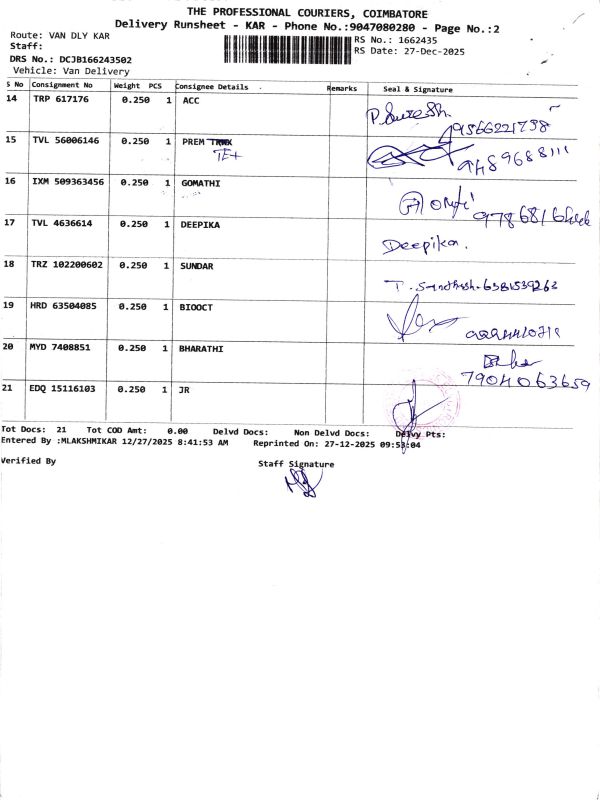 THE PROFESSIONAL COURIERS, COIMBATORE
Delivery Runsheet - KAR - Phone No.:9047080280 - Page No.:2
Route: VAN DLY KAR
RS No.: 1662435
Staff:
RS Date: 27-Dec-2025
DRS No.: DCJB166243502
Vehicle: Van Delivery
S No Consignment No Weight PCS Consignee Details Remarks Seal & Signature
14 TRP 617176 0.250 1 ACC P. Suresh.
9566221798
15 TVL 56006146 0.250 1 PREM
TEX 9489688111
16 IXM 509363456 0.250 1 GOMATHI
17 TVL 4636614 0.250 1 DEEPIKA Deepika.
18 TRZ 102200602 0.250 1 SUNDAR T. Santhosh. 6381539262
19 HRD 63504085 0.250 1 BIOOCT
20 MYD 7408851 0.250 1 BHARATHI
7904063659
21 EDQ 15116103 0.250 1 JR
Tot Docs: 21 Tot COD Amt: 0.00 Delvd Docs: Non Delvd Docs: Delvy Pts:
Entered By :MLAKSHMIKAR 12/27/2025 8:41:53 AM Reprinted On: 27-12-2025 09:53:04
Verified By Staff Signature